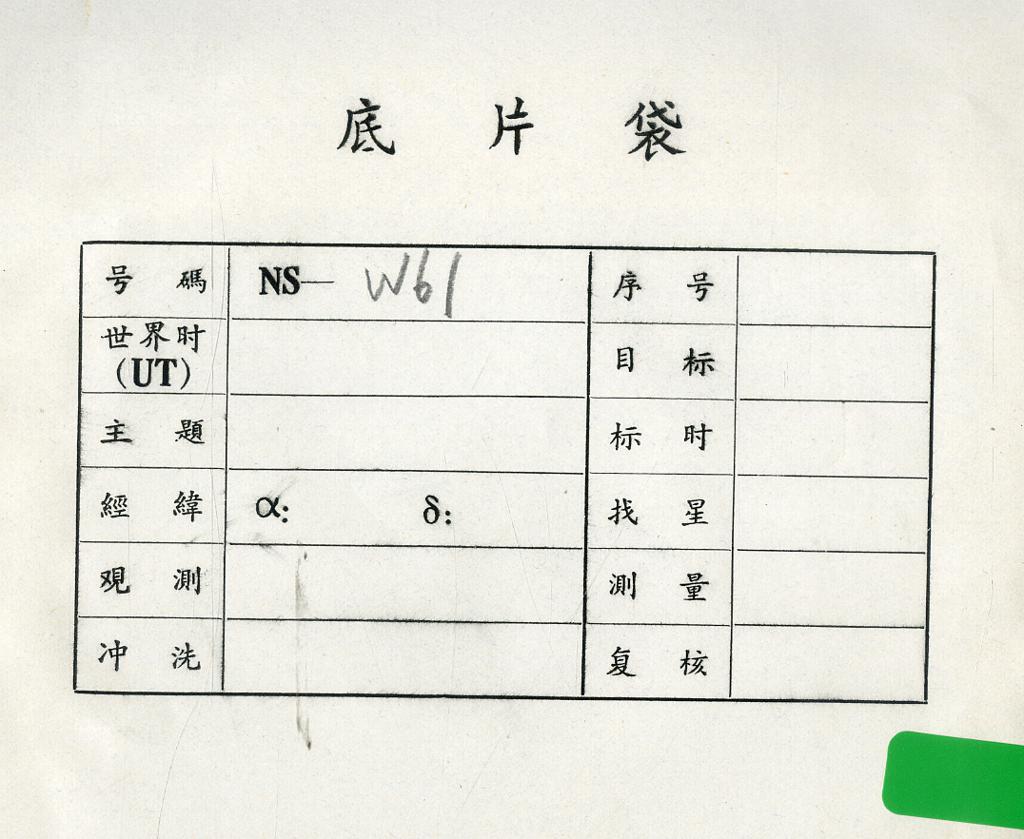 底片袋
号碼 NS— W61 序号
世界时 (UT) 目标
主題 标时
經緯 α: δ: 找星
观測 測量
冲洗 复核